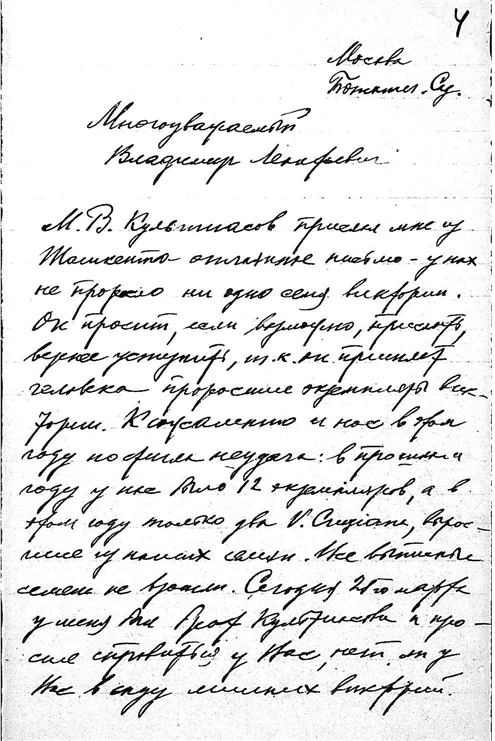 4
Москва
Ботанич. Сад.
Многоуважаемый
Владимир
М. В. Культиасов прислал мне из
Ташкента отчаянное письмо - у них
не проросло ни одно семя виктории.
Он просит, если возможно, прислать,
вернее уступить, т.к. он пришлет
человека проросшие экземпляры вик-
тории. К сожалению и нас в этом
году постигла неудача: в прошлом
году у нас было 12 экземпляров, а в
этом году только два V. Cruziana, вырос-
шие из наших семян. Все выписные
семена не взошли. Сегодня 25го марта
у меня был Культиасова и про-
сил справиться у Вас, нет ли у
Вас в саду лишних викторий.